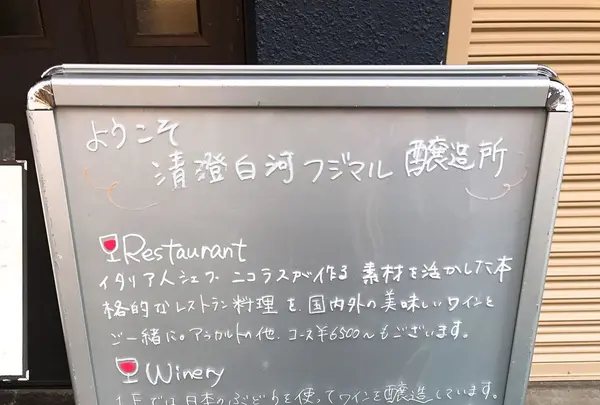 ようこそ
清澄白河フジマル 醸造所
Restaurant
イタリア人シェフ ニコラスが作る 素材を活かした本
格的なレストラン料理を、国内外の美味しいワインと
ご一緒に。アラカルトの他、コース¥6500〜もございます。
Winery
1Fでは日本のぶどうを使ってワインを醸造しています。